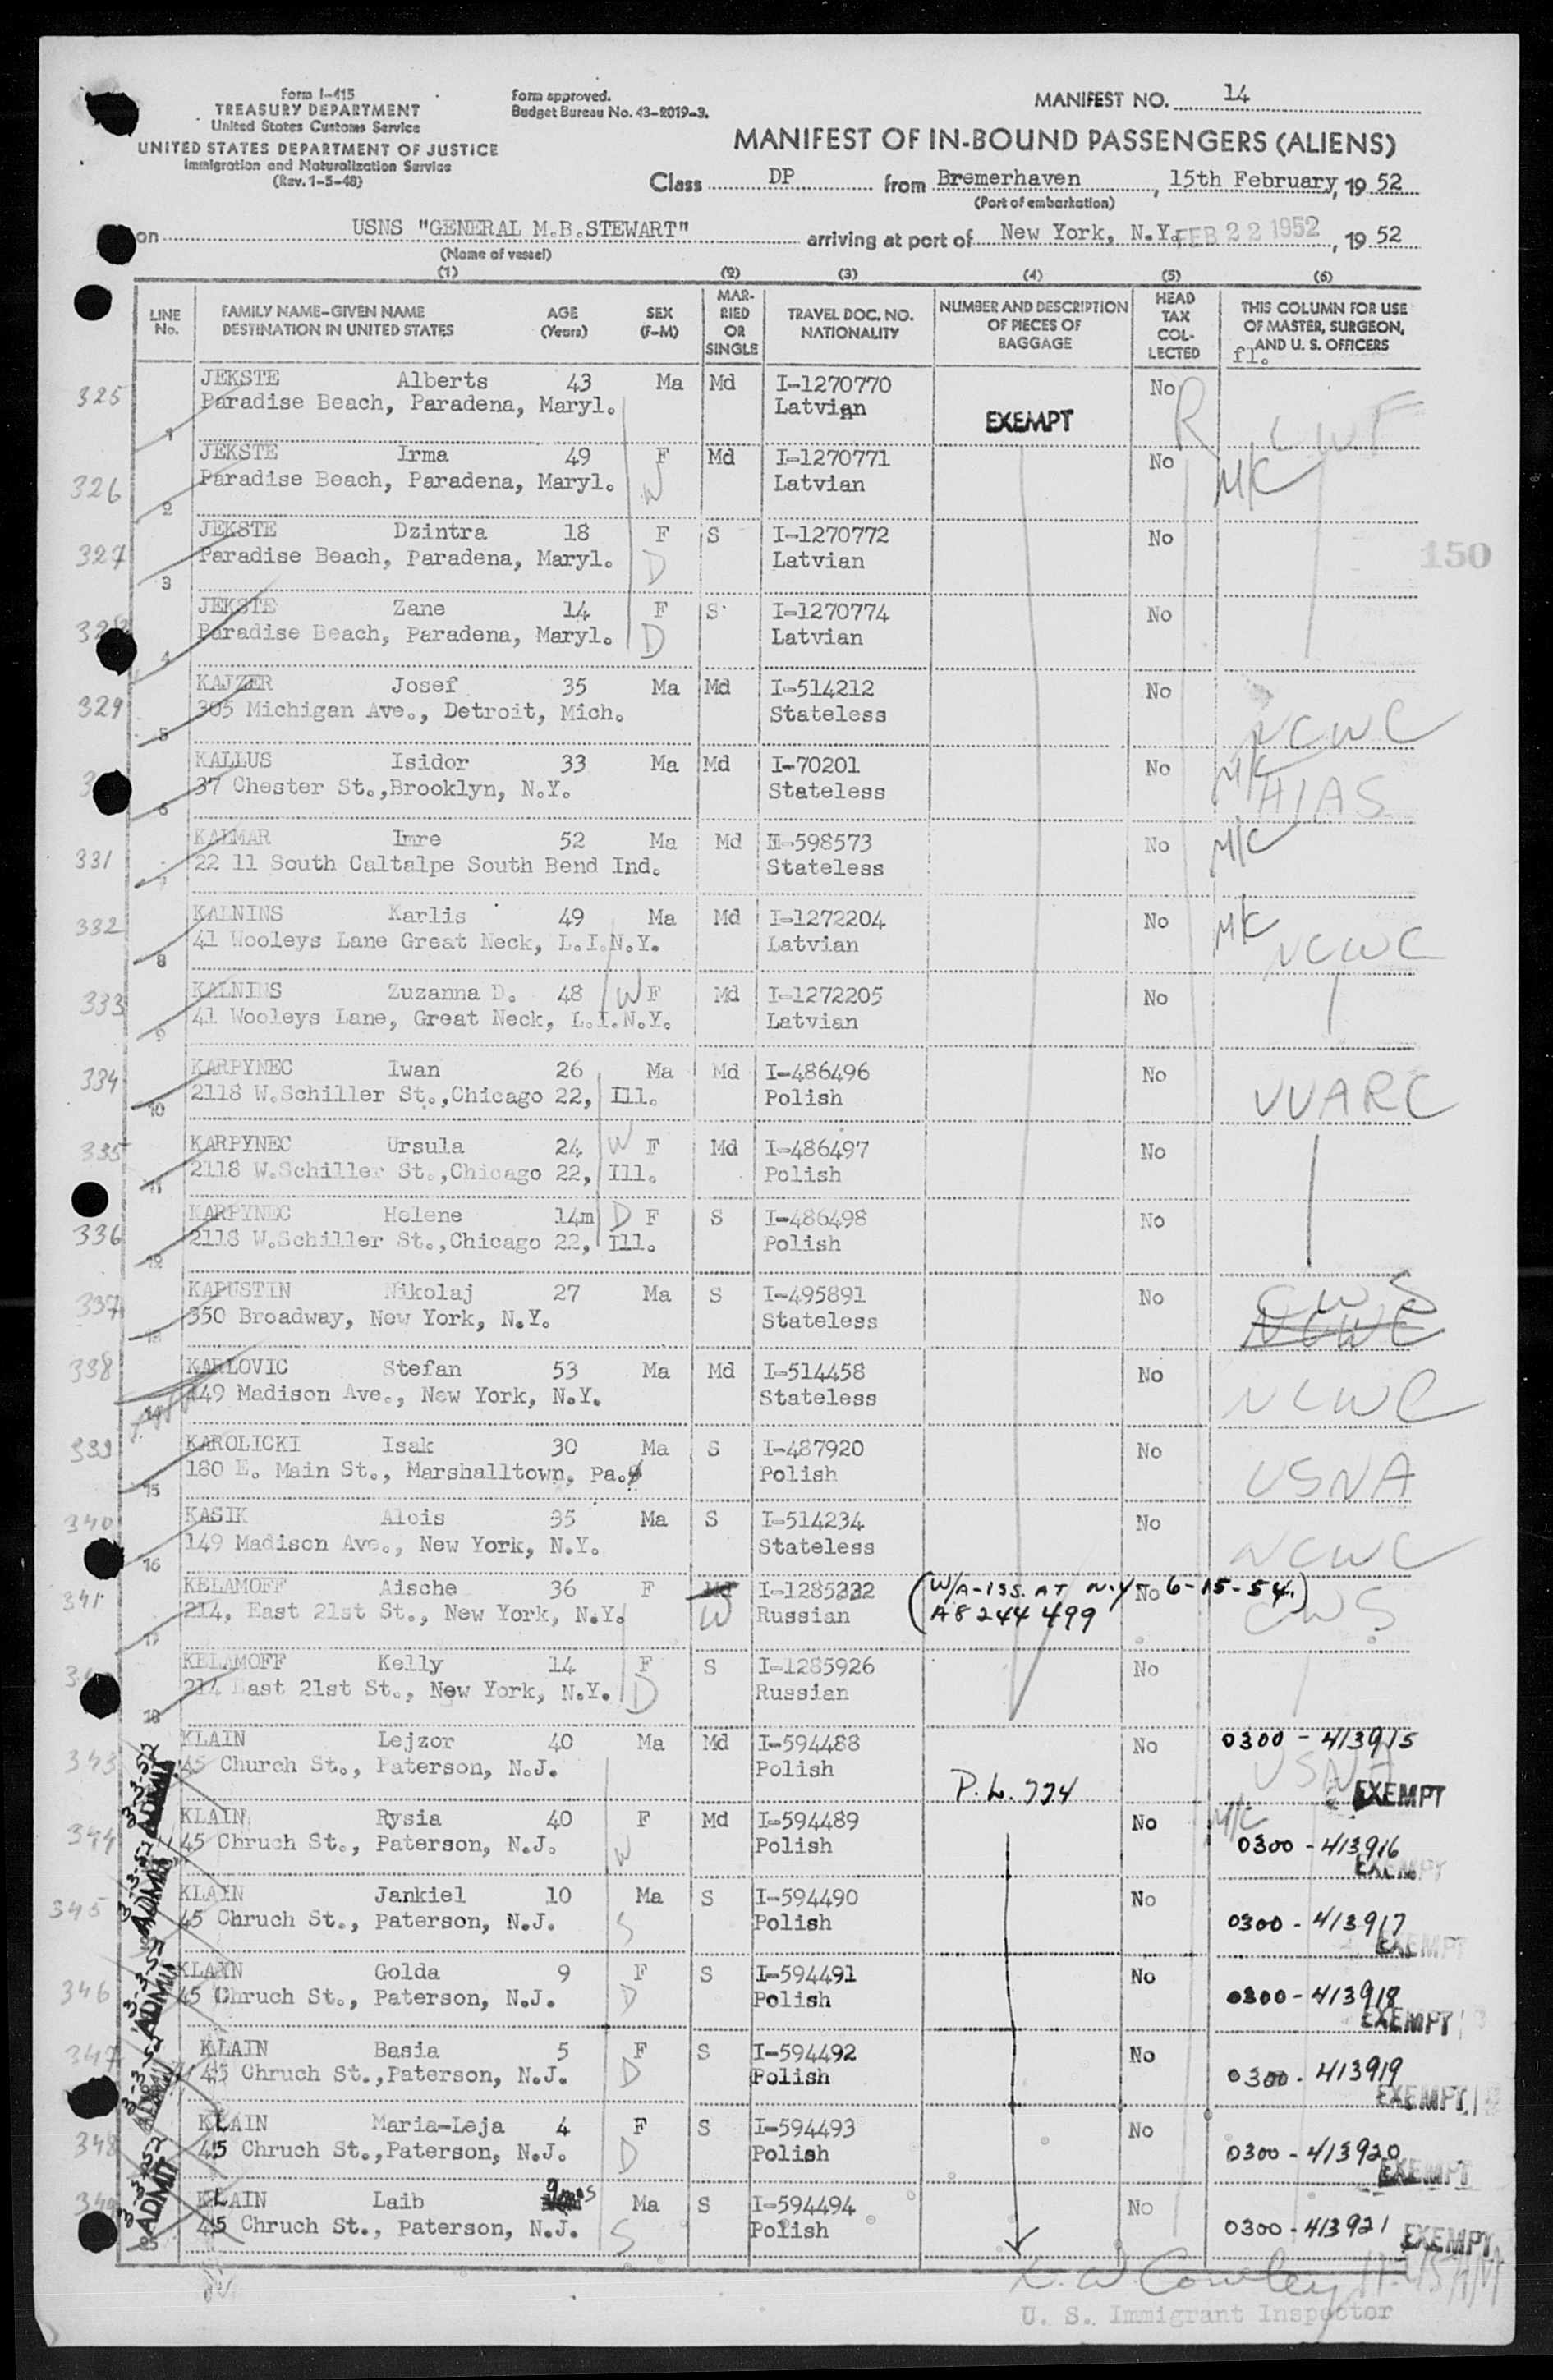 Form I-415
TREASURY DEPARTMENT
United States Customs Service
UNITED STATES DEPARTMENT OF JUSTICE
Immigration and Naturalization Service
(Rev. 1-5-48)
Form approved.
Budget Bureau No. 43-R019-3.
MANIFEST NO. 14
MANIFEST OF IN-BOUND PASSENGERS (ALIENS)
Class DP from Bremerhaven, 15th February, 19 52
(Port of embarkation)
on USNS "GENERAL M.B.STEWART" arriving at port of New York, N.Y. FEB 22 1952, 19 52
(Name of vessel)
(1) (2) (3) (4) (5) (6)
LINE No. FAMILY NAME-GIVEN NAME DESTINATION IN UNITED STATES AGE (Years) SEX (F-M) MARRIED OR SINGLE TRAVEL DOC. NO. NATIONALITY NUMBER AND DESCRIPTION OF PIECES OF BAGGAGE HEAD TAX COLLECTED THIS COLUMN FOR USE OF MASTER, SURGEON, AND U. S. OFFICERS
fl.
325 JEKSTE Alberts 43 Ma Md I-1270770 No R CWF
1 Paradise Beach, Paradena, Maryl. Latvian EXEMPT
326 JEKSTE Irma 49 F Md I-1270771 No M/C
2 Paradise Beach, Paradena, Maryl. W Latvian
327 JEKSTE Dzintra 18 F S I-1270772 No
3 Paradise Beach, Paradena, Maryl. D Latvian
150
328 JEKSTE Zane 14 F S I-1270774 No
4 Paradise Beach, Paradena, Maryl. D Latvian
329 KAJZER Josef 35 Ma Md I-514212 No
5 305 Michigan Ave., Detroit, Mich. Stateless NCWC
KALLUS Isidor 33 Ma Md I-70201 No M/C
6 37 Chester St.,Brooklyn, N.Y. Stateless HIAS
331 KALMAR Imre 52 Ma Md I-598573 No M/C
7 22 11 South Caltalpe South Bend Ind. Stateless
332 KALNINS Karlis 49 Ma Md I-1272204 No M/C
8 41 Wooleys Lane Great Neck, L.I.N.Y. Latvian NCWC
333 KALNINS Zuzanna D. 48 W F Md I-1272205 No
9 41 Wooleys Lane, Great Neck, L.I.N.Y. Latvian
334 KARPYNEC Iwan 26 Ma Md I-486496 No
10 2118 W.Schiller St.,Chicago 22, Ill. Polish UUARC
335 KARPYNEC Ursula 24 W F Md I-486497 No
11 2118 W.Schiller St.,Chicago 22, Ill. Polish
336 KARPYNEC Helene 14m D F S I-486498 No
12 2118 W.Schiller St.,Chicago 22, Ill. Polish
337 KAPUSTIN Nikolaj 27 Ma S I-495891 No CWS
13 350 Broadway, New York, N.Y. Stateless NCWC
338 KARLOVIC Stefan 53 Ma Md I-514458 No
14 149 Madison Ave., New York, N.Y. Stateless NCWC
339 KAROLICKI Isak 30 Ma S I-487920 No
15 180 E. Main St., Marshalltown, Pa. Polish USNA
340 KASIK Alois 35 Ma S I-514234 No
16 149 Madison Ave., New York, N.Y. Stateless NCWC
341 KELAMOFF Aische 36 F Md I-1285332 (W/A-ISS. AT N.Y. No 6-15-54.)
17 214, East 21st St., New York, N.Y. W Russian A8 244 499 CWS
KELAMOFF Kelly 14 F S I-1285926 No
18 214 East 21st St., New York, N.Y. D Russian
343 KLAIN Lejzor 40 Ma Md I-594488 No 0300 - 413915
3-3-52 ADMIT 45 Church St., Paterson, N.J. Polish P.L. 774 USNA EXEMPT
344 KLAIN Rysia 40 F Md I-594489 No M/C
3-3-52 ADMIT 45 Chruch St., Paterson, N.J. W Polish 0300 - 413916 EXEMPT
345 KLAIN Jankiel 10 Ma S I-594490 No
3-3-52 ADMIT 45 Chruch St., Paterson, N.J. S Polish 0300 - 413917 EXEMPT
346 KLAIN Golda 9 F S I-594491 No
3-3-52 ADMIT 45 Chruch St., Paterson, N.J. D Polish 0300 - 413918 EXEMPT
347 KLAIN Basia 5 F S I-594492 No
3-3-52 ADMIT 45 Chruch St.,Paterson, N.J. D Polish 0300 - 413919 EXEMPT
348 KLAIN Maria-Leja 4 F S I-594493 No
3-3-52 ADMIT 45 Chruch St.,Paterson, N.J. D Polish 0300 - 413920 EXEMPT
349 KLAIN Laib 9mos Ma S I-594494 No
45 Chruch St., Paterson, N.J. S Polish 0300 - 413921 EXEMPT
11:45 AM
U. S. Immigrant Inspector